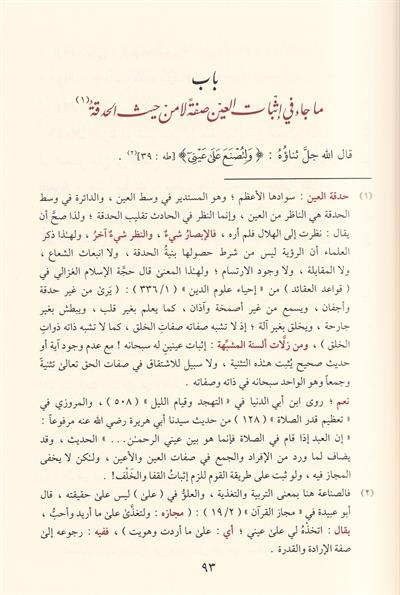 باب
ما جاء في إثبات العين صفةً لا من حيث الحدقة(١)
قال الله جلَّ ثناؤُهُ : ﴿ وَلِتُصْنَعَ عَلَىٰ عَيْنِيٓ ﴾ [طه : ٣٩](٢) .
(١) حدقة العين : سوادها الأعظم ؛ وهو المستدير في وسط العين ، والدائرة في وسط
الحدقة هي الناظر من العين ، وإنما النظر في الحادث تقليب الحدقة ؛ ولذا صحَّ أن
يقال : نظرت إلى الهلال فلم أره ، فالإبصارُ شيءٌ ، والنظر شيءٌ آخرُ ، ولهذا ذكر
العلماء أن الرؤية ليس من شرط حصولها بنيةُ الحدقة ، ولا انبعاث الشعاع ،
ولا المقابلة ، ولا وجود الارتسام ؛ ولهذا المعنىٰ قال حجَّة الإسلام الغزالي في
( قواعد العقائد ) من « إحياء علوم الدين » ( ١/ ٣٣٦ ) : ( يَرىٰ من غير حدقة
وأجفان ، ويسمع من غير أصمخة وآذان ، كما يعلم بغير قلب ، ويبطش بغير
جارحة ، ويخلق بغير آلة ؛ إذ لا تشبه صفاته صفاتِ الخلق ، كما لا تشبه ذاته ذواتِ
الخلق ) ، ومن زلَّات ألسنة المشبِّهة : إثبات عينينِ له سبحانه ! مع عدم وجود آية أو
حديث صحيح يُثبت هذه التثنية ، ولا سبيل للاشتقاق في صفات الحق تعالىٰ تثنيةً
وجمعاً وهو الواحد سبحانه في ذاته وصفاته .
نعم ؛ روى ابن أبي الدنيا في « التهجد وقيام الليل » ( ٥٠٨ ) ، والمروزي في
« تعظيم قدر الصلاة » ( ١٢٨ ) من حديث سيدنا أبي هريرة رضي الله عنه مرفوعاً :
« إن العبد إذا قام في الصلاة فإنما هو بين عيني الرحمٰن... » الحديث ، وقد
يضاف لما ورد من الإفراد والجمع في صفات العين والأعين ، ولكن لا يخفى
المجاز فيه ، ولو ثبت على طريقة القوم للزم إثباتُ القفا والخَلْف! .
(٢) فالصناعة هنا بمعنى التربية والتغذية ، والعلوُّ في ( علىٰ ) ليس علىٰ حقيقته ، قال
أبو عبيدة في « مجاز القرآن » ( ٢/ ١٩ ) : ( مجازه : ولتغذَّىٰ علىٰ ما أريد وأحبُّ ،
يقال : اتخذْهُ لي علىٰ عيني ؛ أي : علىٰ ما أردت وهويت ) ، ففيه : رجوعه إلىٰ
صفة الإرادة والقدرة .
٩٣